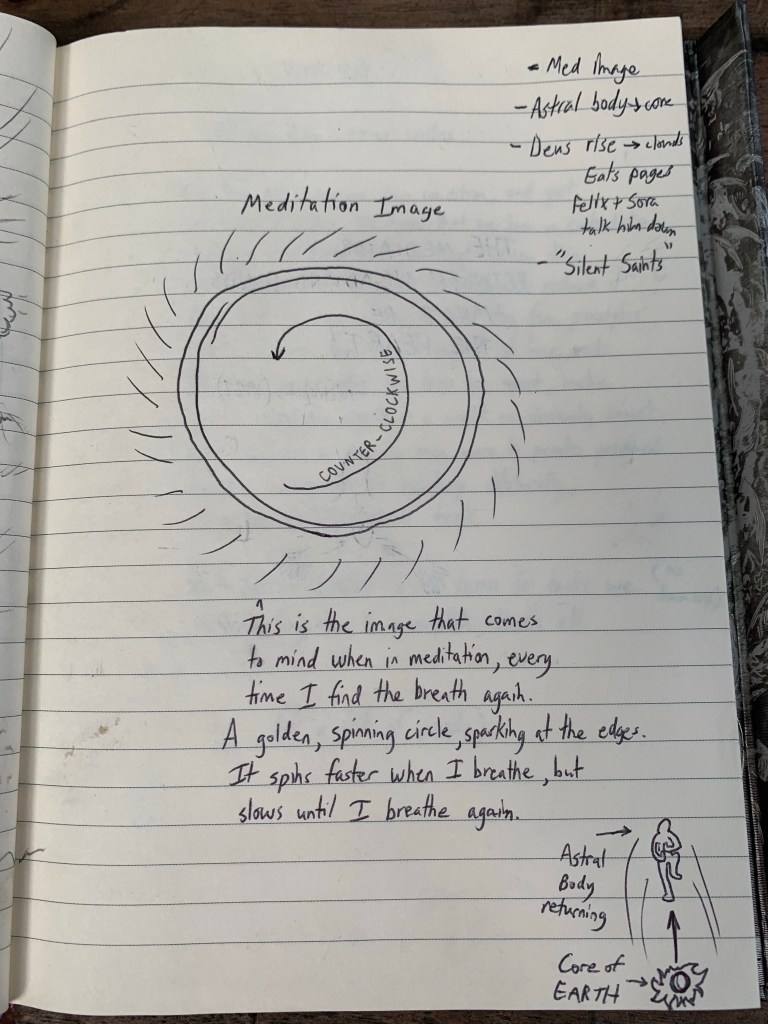 - Med Image
- Astral body → core
- Deus rise → clouds
Eats pages
Felix + Sora
talk him down
- "Silent Saints"
Meditation Image
COUNTER-CLOCKWISE
This is the image that comes
to mind when in meditation, every
time I find the breath again.
A golden, spinning circle, sparking at the edges.
It spins faster when I breathe, but
slows until I breathe again.
Astral
Body
returning
Core of
EARTH